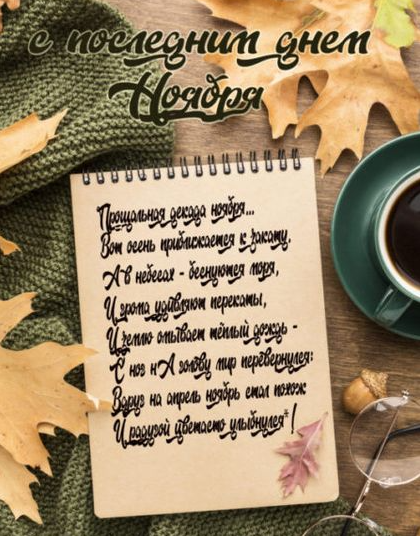 с последним днем
Ноября
Прощальная декада ноября...
Вот осень приближается к закату,
А в небесах - беснуются моря,
И грома удивляют перекаты,
И землю омывает тёплый дождь -
С ног нА голову мир перевернулся:
Вдруг на апрель ноябрь стал похож
И радугой цветасто улыбнулся*!